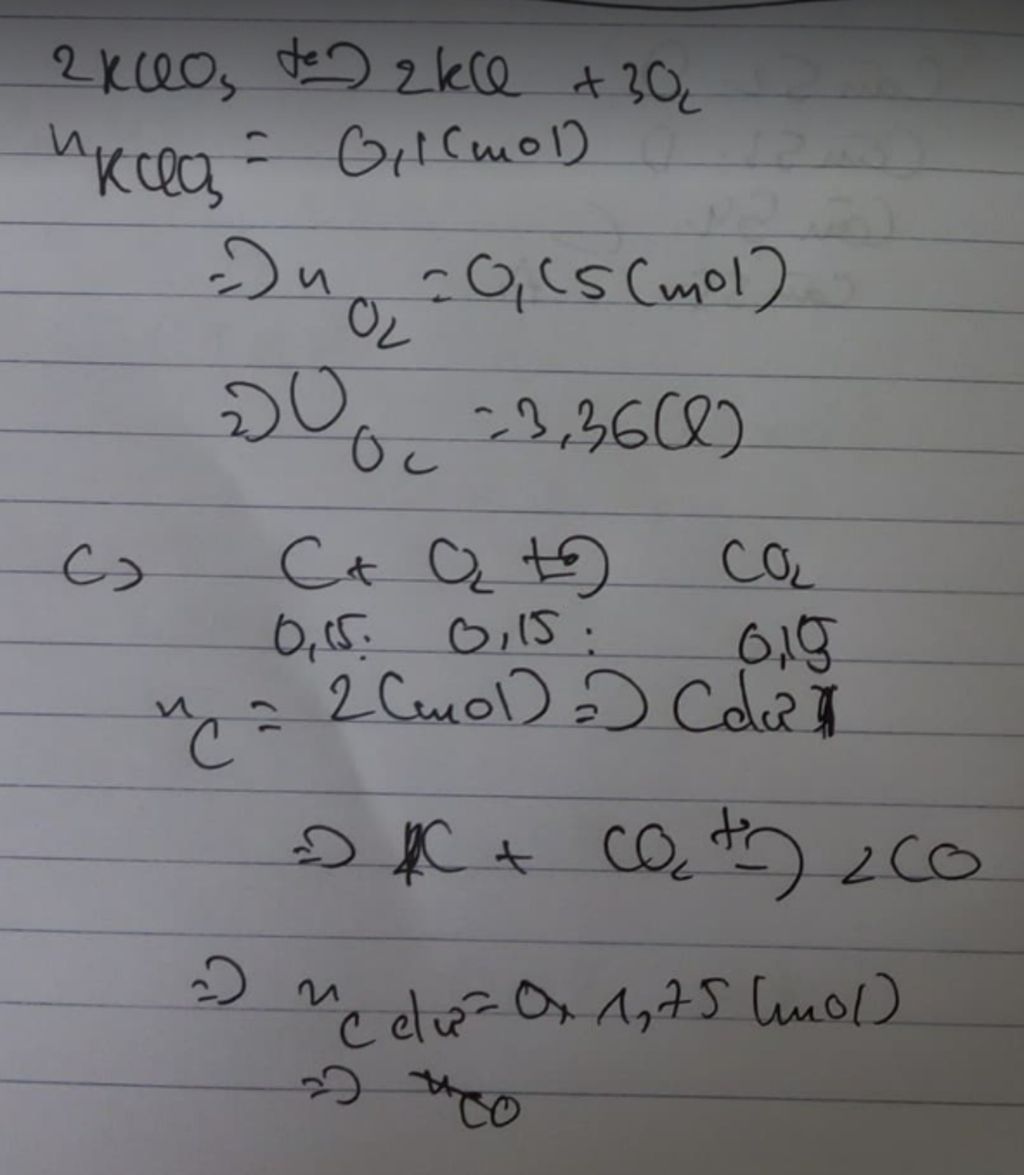 2KClO₃ t°→ 2KCl + 3O₂
n KClO₃ = 0,1 (mol)
=> n O₂ = 0,15 (mol)
=> V O₂ = 3,36 (l)
c) C + O₂ t°→ CO₂
0,15 : 0,15 : 0,15
n C = 2 (mol) => C dư
=> C + CO₂ t°→ 2CO
=> n C dư = 1,75 (mol)
=> n CO